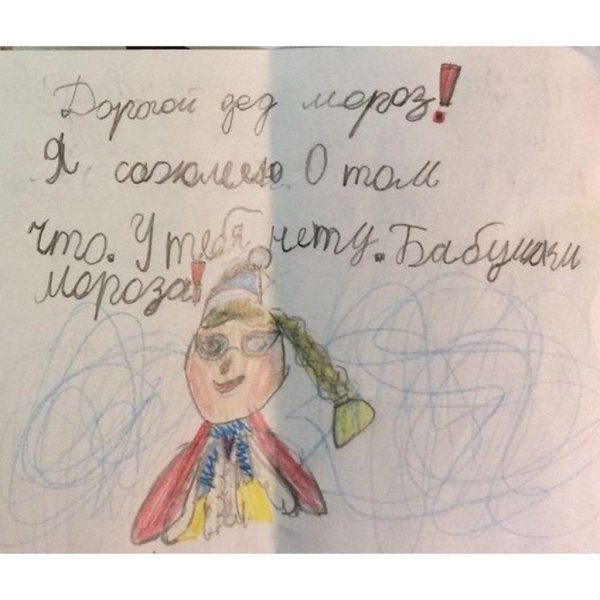 Дорогой дед мороз!
Я сожелею О том
что. У тебя нету. Бабушки
мороза!